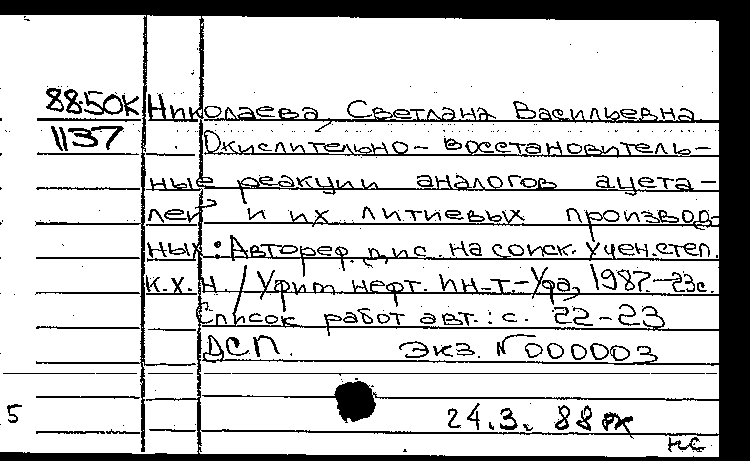 88.50К Николаева, Светлана Васильевна
1137 Окислительно-восстановитель-
ные реакции аналогов ацета-
лей и их литиевых производ-
ных: Автореф. дис. на соиск. учен. степ.
к.х.н. / Уфим. нефт. ин-т.-Уфа, 1987.-23с.
Список работ авт.: с. 22-23
ДСП. Экз. №000003
5 24.3. 88
нс